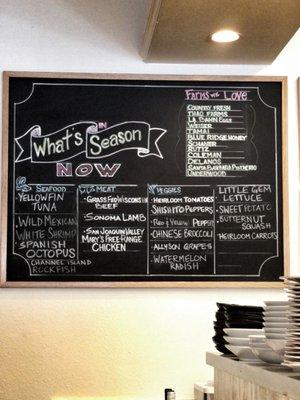 What's
IN
Season
NOW
Farms we Love
COUNTRY FRESH
THAO FARMS
LA BAHN EGGS
WEISER
TAMAI
BLUE RIDGE HONEY
SCHANER
RUTIZ
COLEMAN
DELANOS
SANTA BARBARA PISTACHIO
UNDERWOOD
SEAFOOD
YELLOWFIN
TUNA
WILD MEXICAN
WHITE SHRIMP
SPANISH
OCTOPUS
CHANNEL ISLAND
ROCKFISH
MEAT
GRASS FED WISCONSIN
BEEF
SONOMA LAMB
SAN JOAQUIN VALLEY
MARY'S FREE-RANGE
CHICKEN
VEGGIES
HEIRLOOM TOMATOES
SHISHITO PEPPERS
RED & YELLOW PEPPERS
CHINESE BROCCOLI
ALLYSON GRAPES
WATERMELON
RADISH
LITTLE GEM
LETTUCE
SWEET POTATO
BUTTERNUT
SQUASH
HEIRLOOM CARROTS